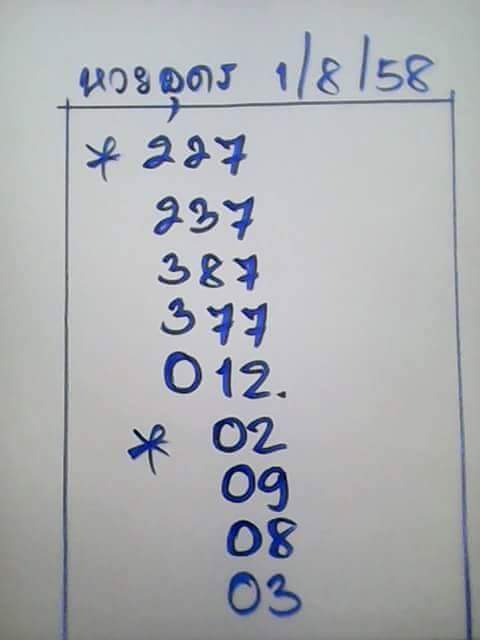 หวยอุดร 1/8/58
* 227
237
387
377
012.
* 02
09
08
03